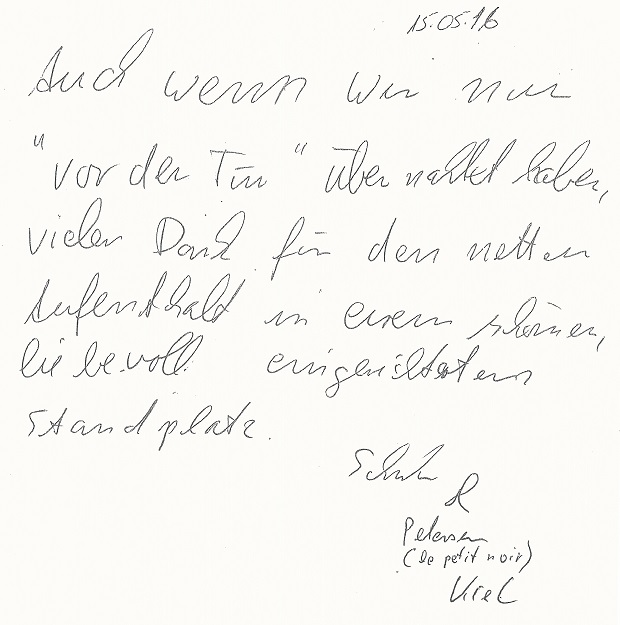 15.05.16
Auch wenn wir nur
"vor der Tür" übernachtet haben,
vielen Dank für den netten
Aufenthalt in einem schönen,
liebevoll eingerichteten
Standplatz.
&
Petersen
(le petit noir)
Kiel